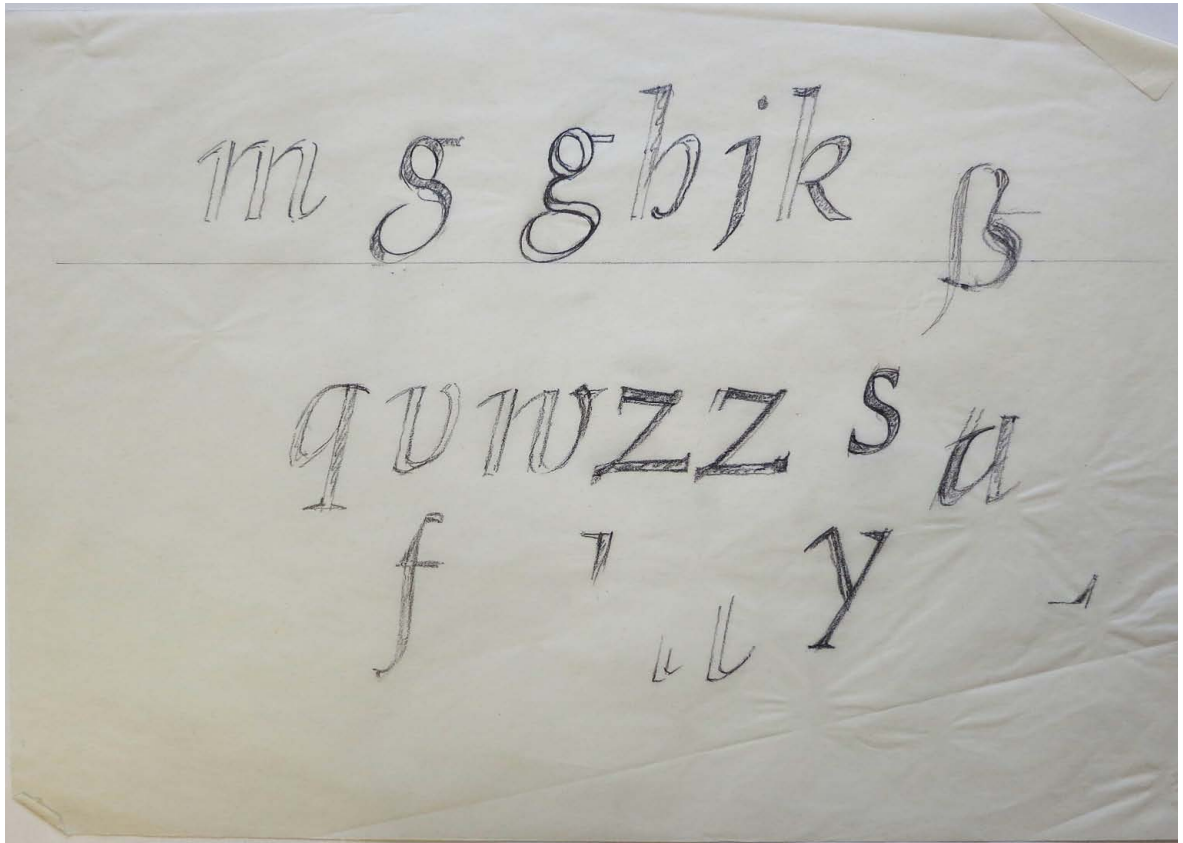 m g g h j k ß
q v w z z s u
f y